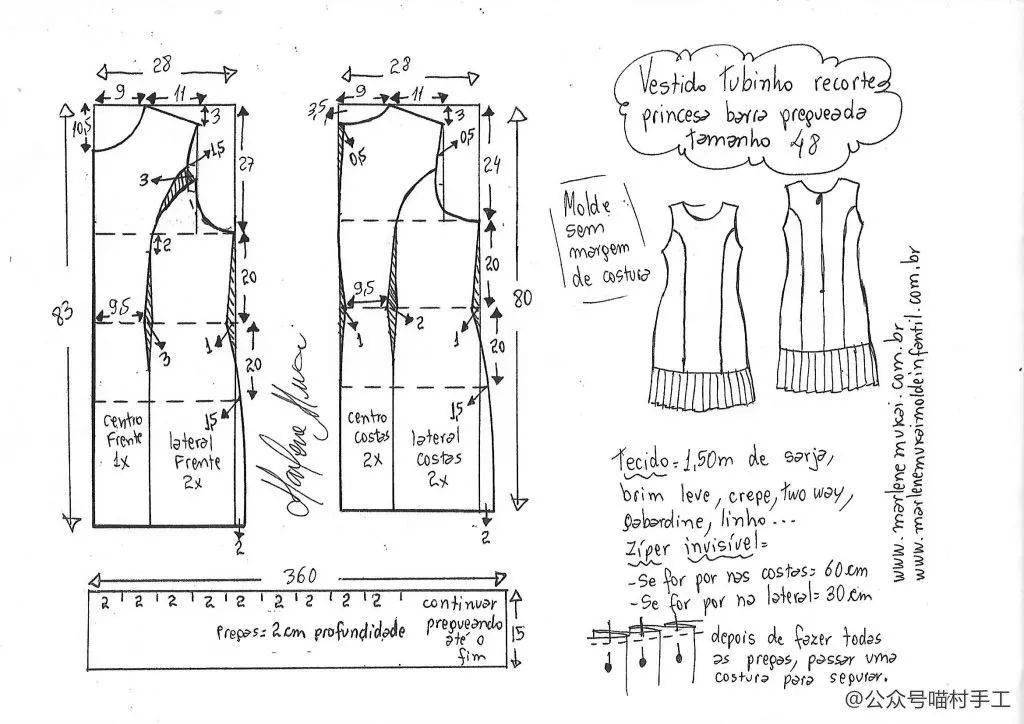 28
9 11
10,5
3
1,5
3
27
2
9,5
20
3
1
20
83
1,5
centro
Frente
1x
lateral
Frente
2x
2
28
3,5
9 11
3
0,5
0,5
24
9,5
20
1
2
1
20
80
1,5
centro
costas
2x
lateral
costas
2x
2
Marlene Mukai
360
2 2 2 2 2 2 2 2 2
continuar
pregueando
até o
fim
Pregas=2cm profundidade
15
Vestido Tubinho recortes
princesa barra pregueada
tamanho 48
Molde
sem
margem
de costura
www.marlenemukai.com.br
www.marlenemukaimoldeinfantil.com.br
Tecido=1,50m de sarja,
brim leve, crepe, two way,
gabardine, linho...
Zíper invisível=
-Se for por nas costas=60cm
-Se for por na lateral=30cm
depois de fazer todas
as pregas, passar uma
costura para segurar.
@公众号喵村手工